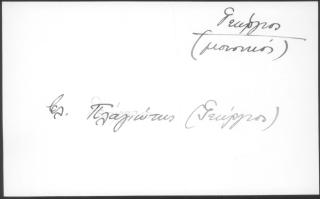 Γεώργιος
(μουσικός)
βλ. Πελαγιώτης (Γεώργιος)